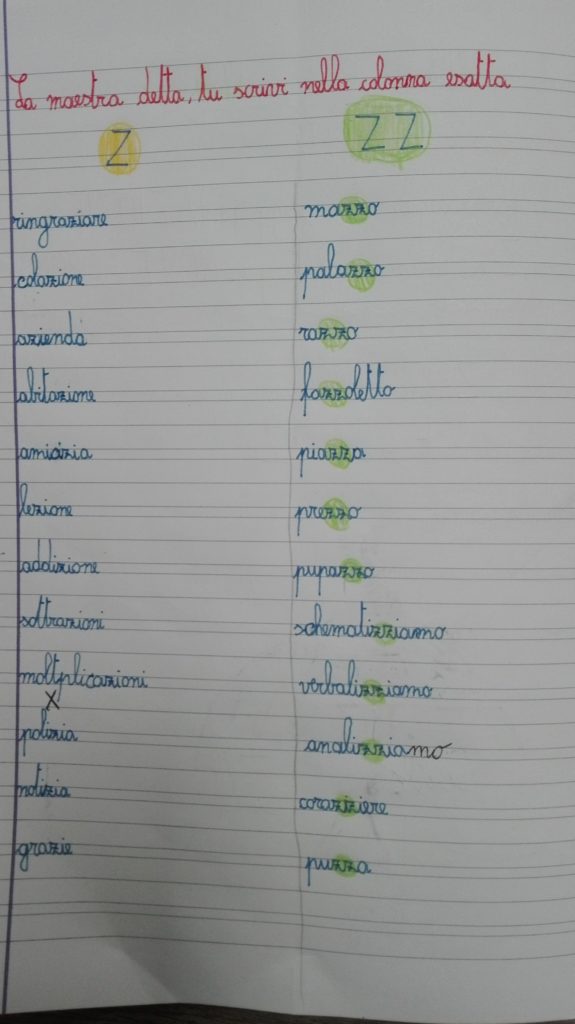 La maestra detta, tu scrivi nella colonna esatta
Z
ringraziare
colazione
azienda
abitazione
amicizia
lezione
addizione
sottrazioni
moltplicazioni
x
polizia
notizia
grazie
ZZ
mazzo
palazzo
razzo
fazzoletto
piazza
prezzo
pupazzo
schematizziamo
verbalizziamo
analizziamo
corazziere
puzza